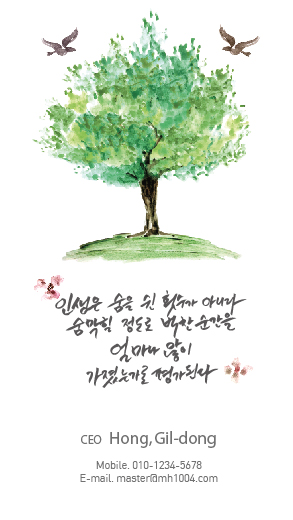 인생은 숨을 쉰 횟수가 아니라
숨막힐 정도로 벅찬 순간을
얼마나 많이
가졌는가로 평가된다
CEO Hong, Gil-dong
Mobile. 010-1234-5678
E-mail. master@mh1004.com